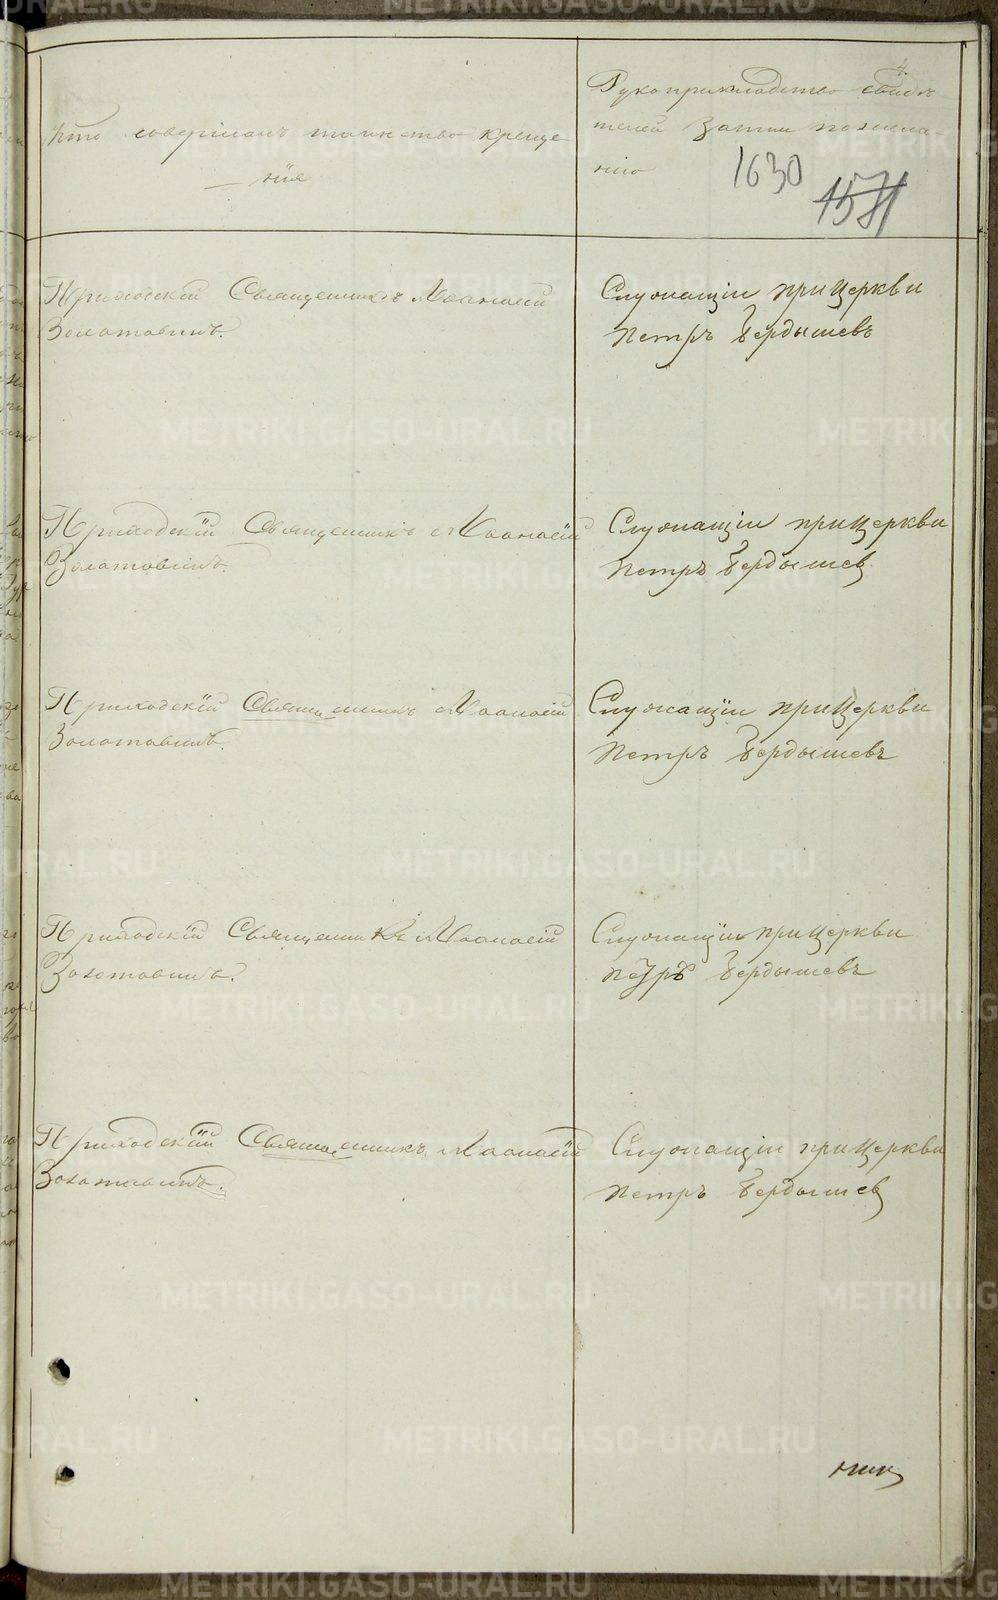 Кто совершалъ таинство креще
нія
Рукоприкладство свидѣ
телей записи по жела
нію
4.
1630
1571
Приходскій Священникъ Аѳанасій
Золотавинъ.
Служащіи при Церкви
Петръ Бердышевъ
Приходскій Священникъ Аѳанасій
Золотавинъ
Служащіи при Церкви
Петръ Бердышев
Приходскій Священникъ Аѳанасій
Золотавинъ.
Служащіи при Церкви
Петръ Бердышевъ
Приходскій Священникъ Аѳанасій
Золотавинъ.
Служащіи при Церкви
Петръ Бердышевъ
Приходскій Священникъ Аѳанасій
Золотавинъ.
Служащіи при Церкви
Петръ Бердышев
METRIKI.GASO-URAL.RU